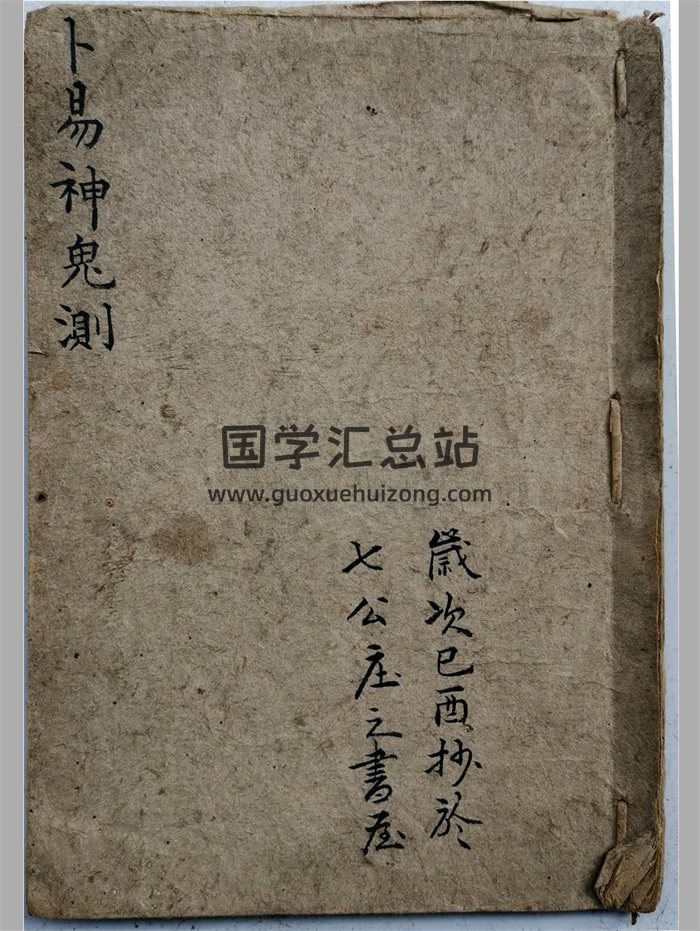 卜易神鬼測
歲次已酉抄於
七公庄之書屋
国学汇总站
www.guoxuehuizong.com